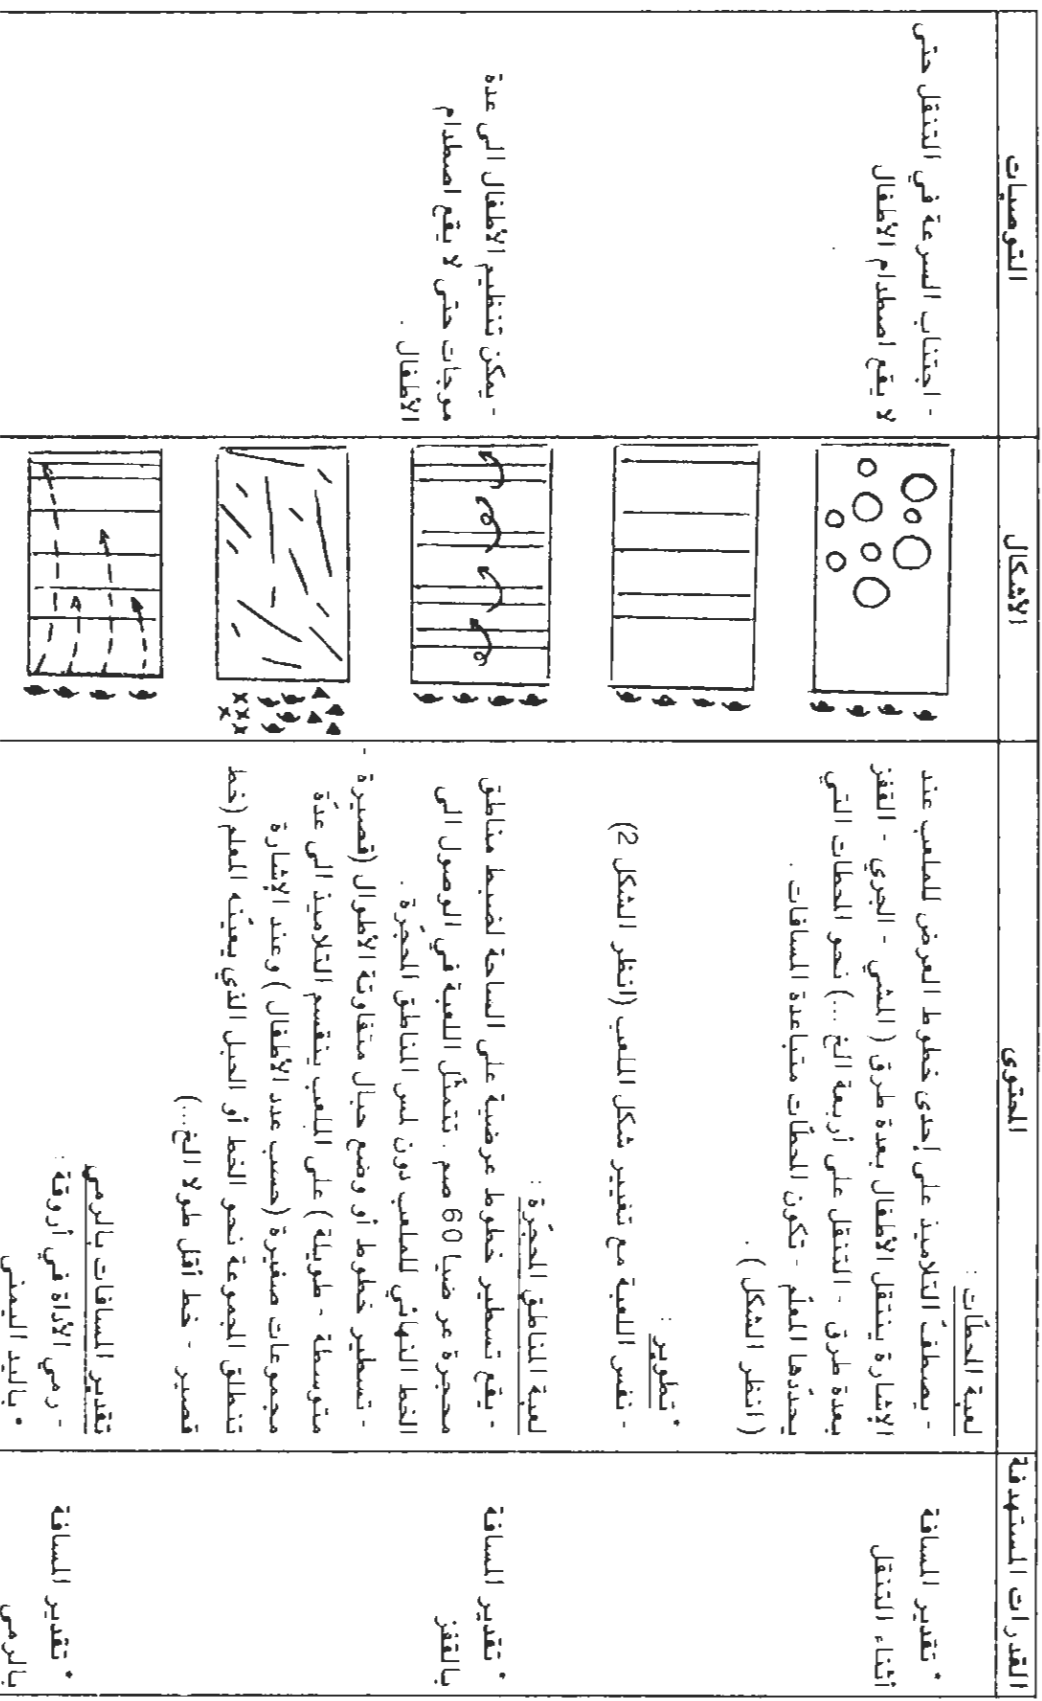 القدرات المستهدفة
المحتوى
الأشكال
التوصيات
* تقدير المسافة
أثناء التنقل
لعبة المحطّات :
- يصطفّ التلاميذ على إحدى خطوط العرض للملعب عند
الإشارة ينتقل الأطفال بعدة طرق ( المشي - الجري - القفز
بعدة طرق - التنقل على أربعة الخ ...) نحو المحطات التي
يحدّدها المعلّم - تكون المحطّات متباعدة المسافات .
( انظر الشكل ) .
* تطوير :
- نفس اللعبة مع تغيير شكل الملعب (انظر الشكل 2)
- اجتناب السرعة في التنقل حتى
لا يقع اصطدام الأطفال
* تقدير المسافة
بالقفز
لعبة المناطق المحجّرة :
- يقع تسطير خطوط عرضية على الساحة لضبط مناطق
محجرة عرضيا 60 صم . تتمثّل اللعبة في الوصول الى
الخط النهائي للملعب دون لمس المناطق المحجّرة .
- تسطير خطوط أو وضع حبال متفاوتة الأطوال (قصيرة -
متوسطة - طويلة ) على الملعب ينقسم التلاميذ الى عدّة
مجموعات صغيرة (حسب عدد الأطفال ) وعند الإشارة
تنطلق المجموعة نحو الخط أو الحبل الذي يعيّنه المعلم (خط
قصير - خط أقل طولا الخ...)
- يمكن تنظيم الأطفال الى عدة
موجات حتى لا يقع اصطدام
الأطفال .
* تقدير المسافة
بالرمي
تقدير المسافات بالرمي
- رمي الأداة في أروقة :
• باليد اليمنى